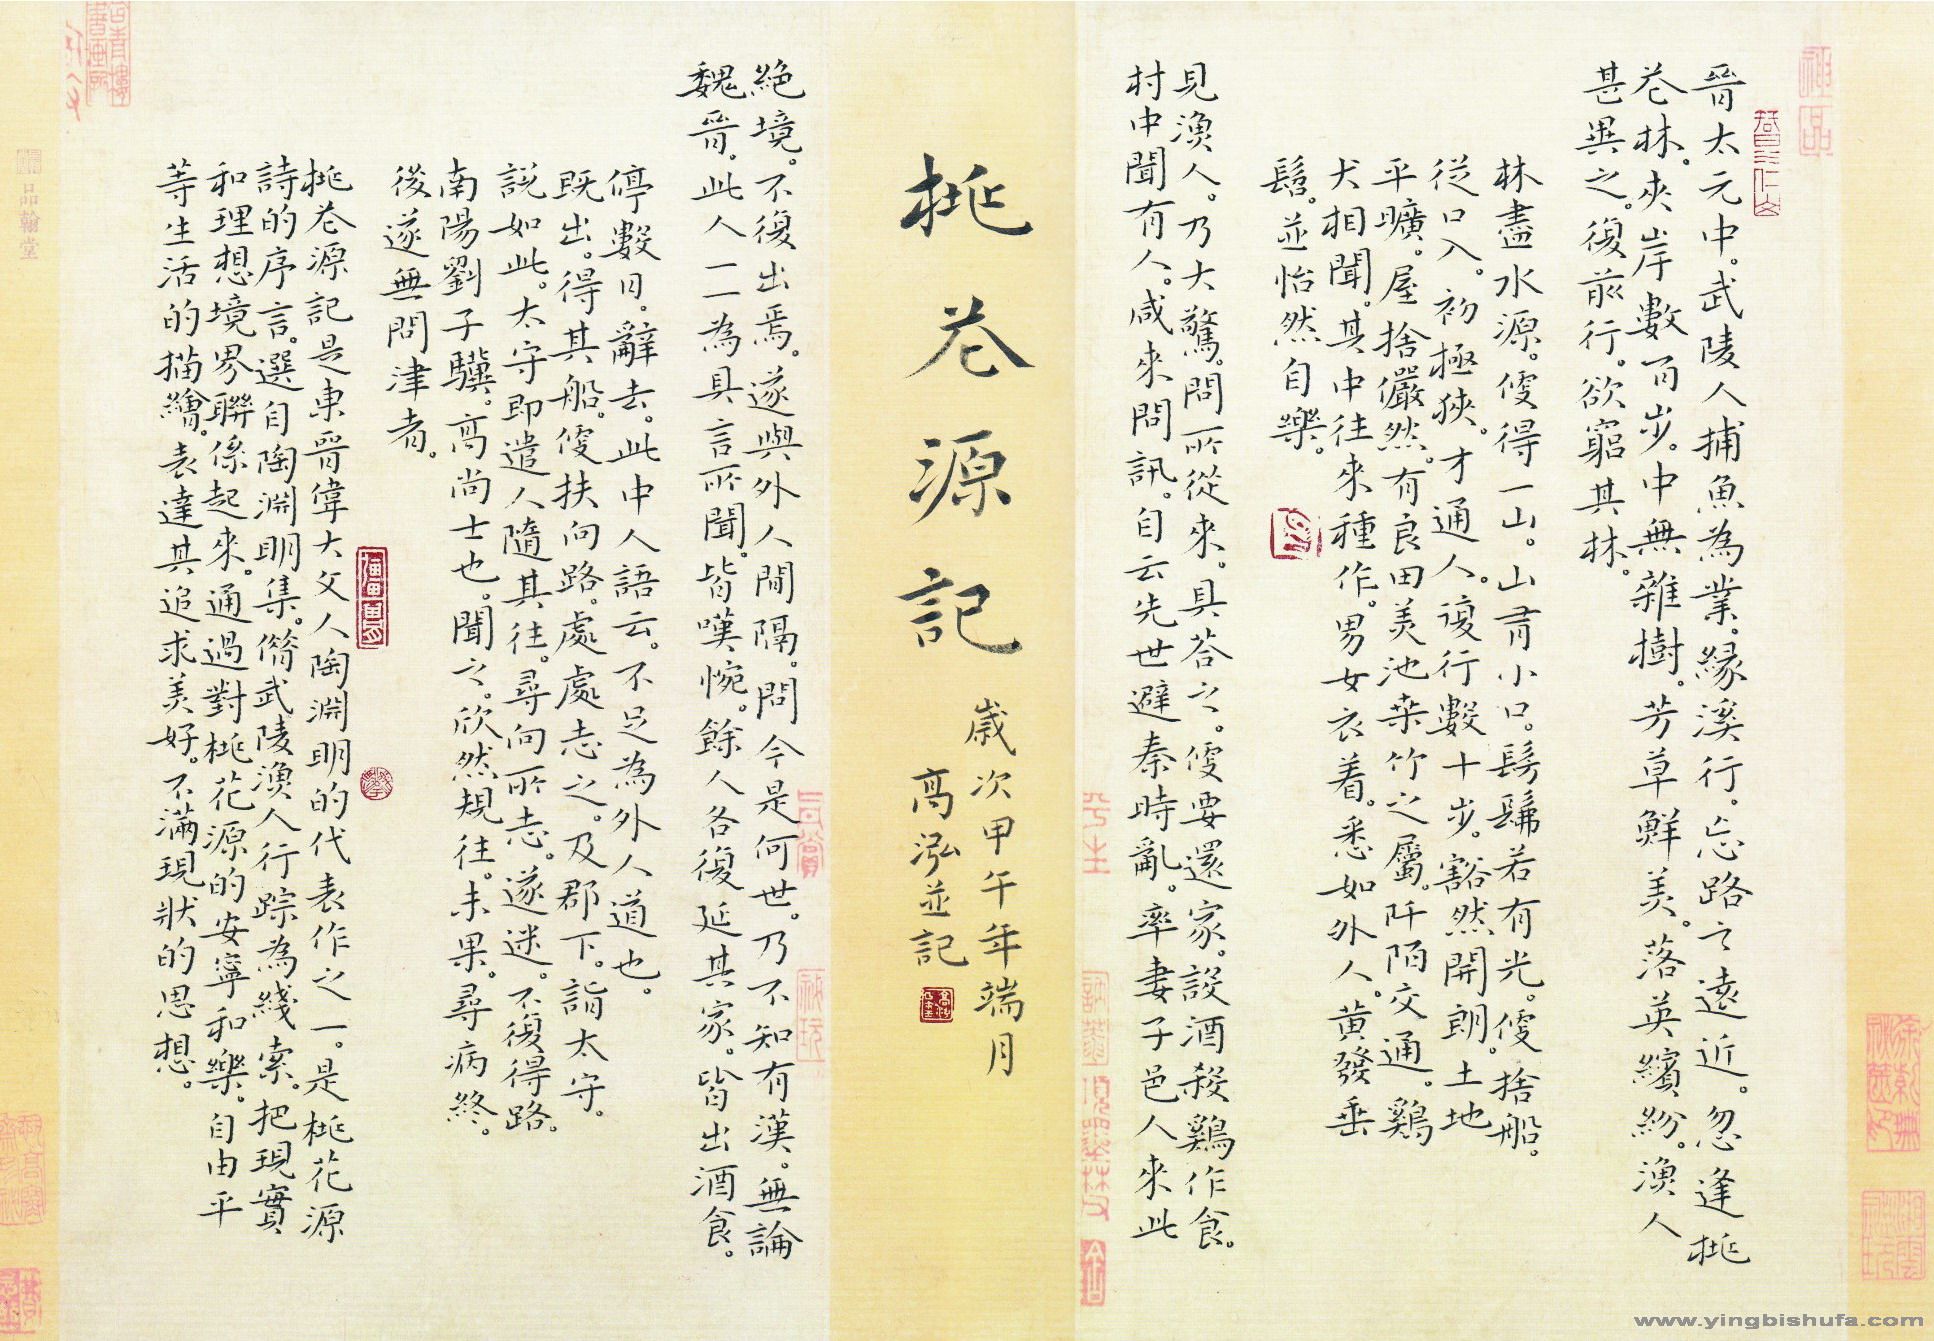 晉太元中。武陵人捕魚為業。緣溪行。忘路之遠近。忽逢桃
花林。夾岸數百步。中無雜樹。芳草鮮美。落英繽紛。漁人
甚異之。復前行。欲窮其林。
林盡水源。便得一山。山有小口。髣髴若有光。便捨船。
從口入。初極狹。才通人。復行數十步。豁然開朗。土地
平曠。屋捨儼然。有良田美池桑竹之屬。阡陌交通。鷄
犬相聞。其中往來種作。男女衣着。悉如外人。黃發垂
髫。並怡然自樂。
見漁人。乃大驚。問所從來。具答之。便要還家。設酒殺鷄作食。
村中聞有人。咸來問訊。自云先世避秦時亂。率妻子邑人來此
桃花源記
歲次甲午年端月
高泓並記
絕境。不復出焉。遂與外人間隔。問今是何世。乃不知有漢。無論
魏晉。此人一一為具言所聞。皆嘆惋。餘人各復延其家。皆出酒食。
停數日。辭去。此中人語云。不足為外人道也。
既出。得其船。便扶向路。處處志之。及郡下。詣太守。
說如此。太守即遣人隨其往。尋向所志。遂迷。不復得路。
南陽劉子驥。高尚士也。聞之。欣然規往。未果。尋病終。
後遂無問津者。
桃花源記是東晉偉大文人陶淵明的代表作之一。是桃花源
詩的序言。選自陶淵明集。借武陵漁人行踪為綫索。把現實
和理想境界聯係起來。通過對桃花源的安寧和樂。自由平
等生活的描繪。表達其追求美好。不滿現狀的思想。
品翰堂
www.yingbishufa.com